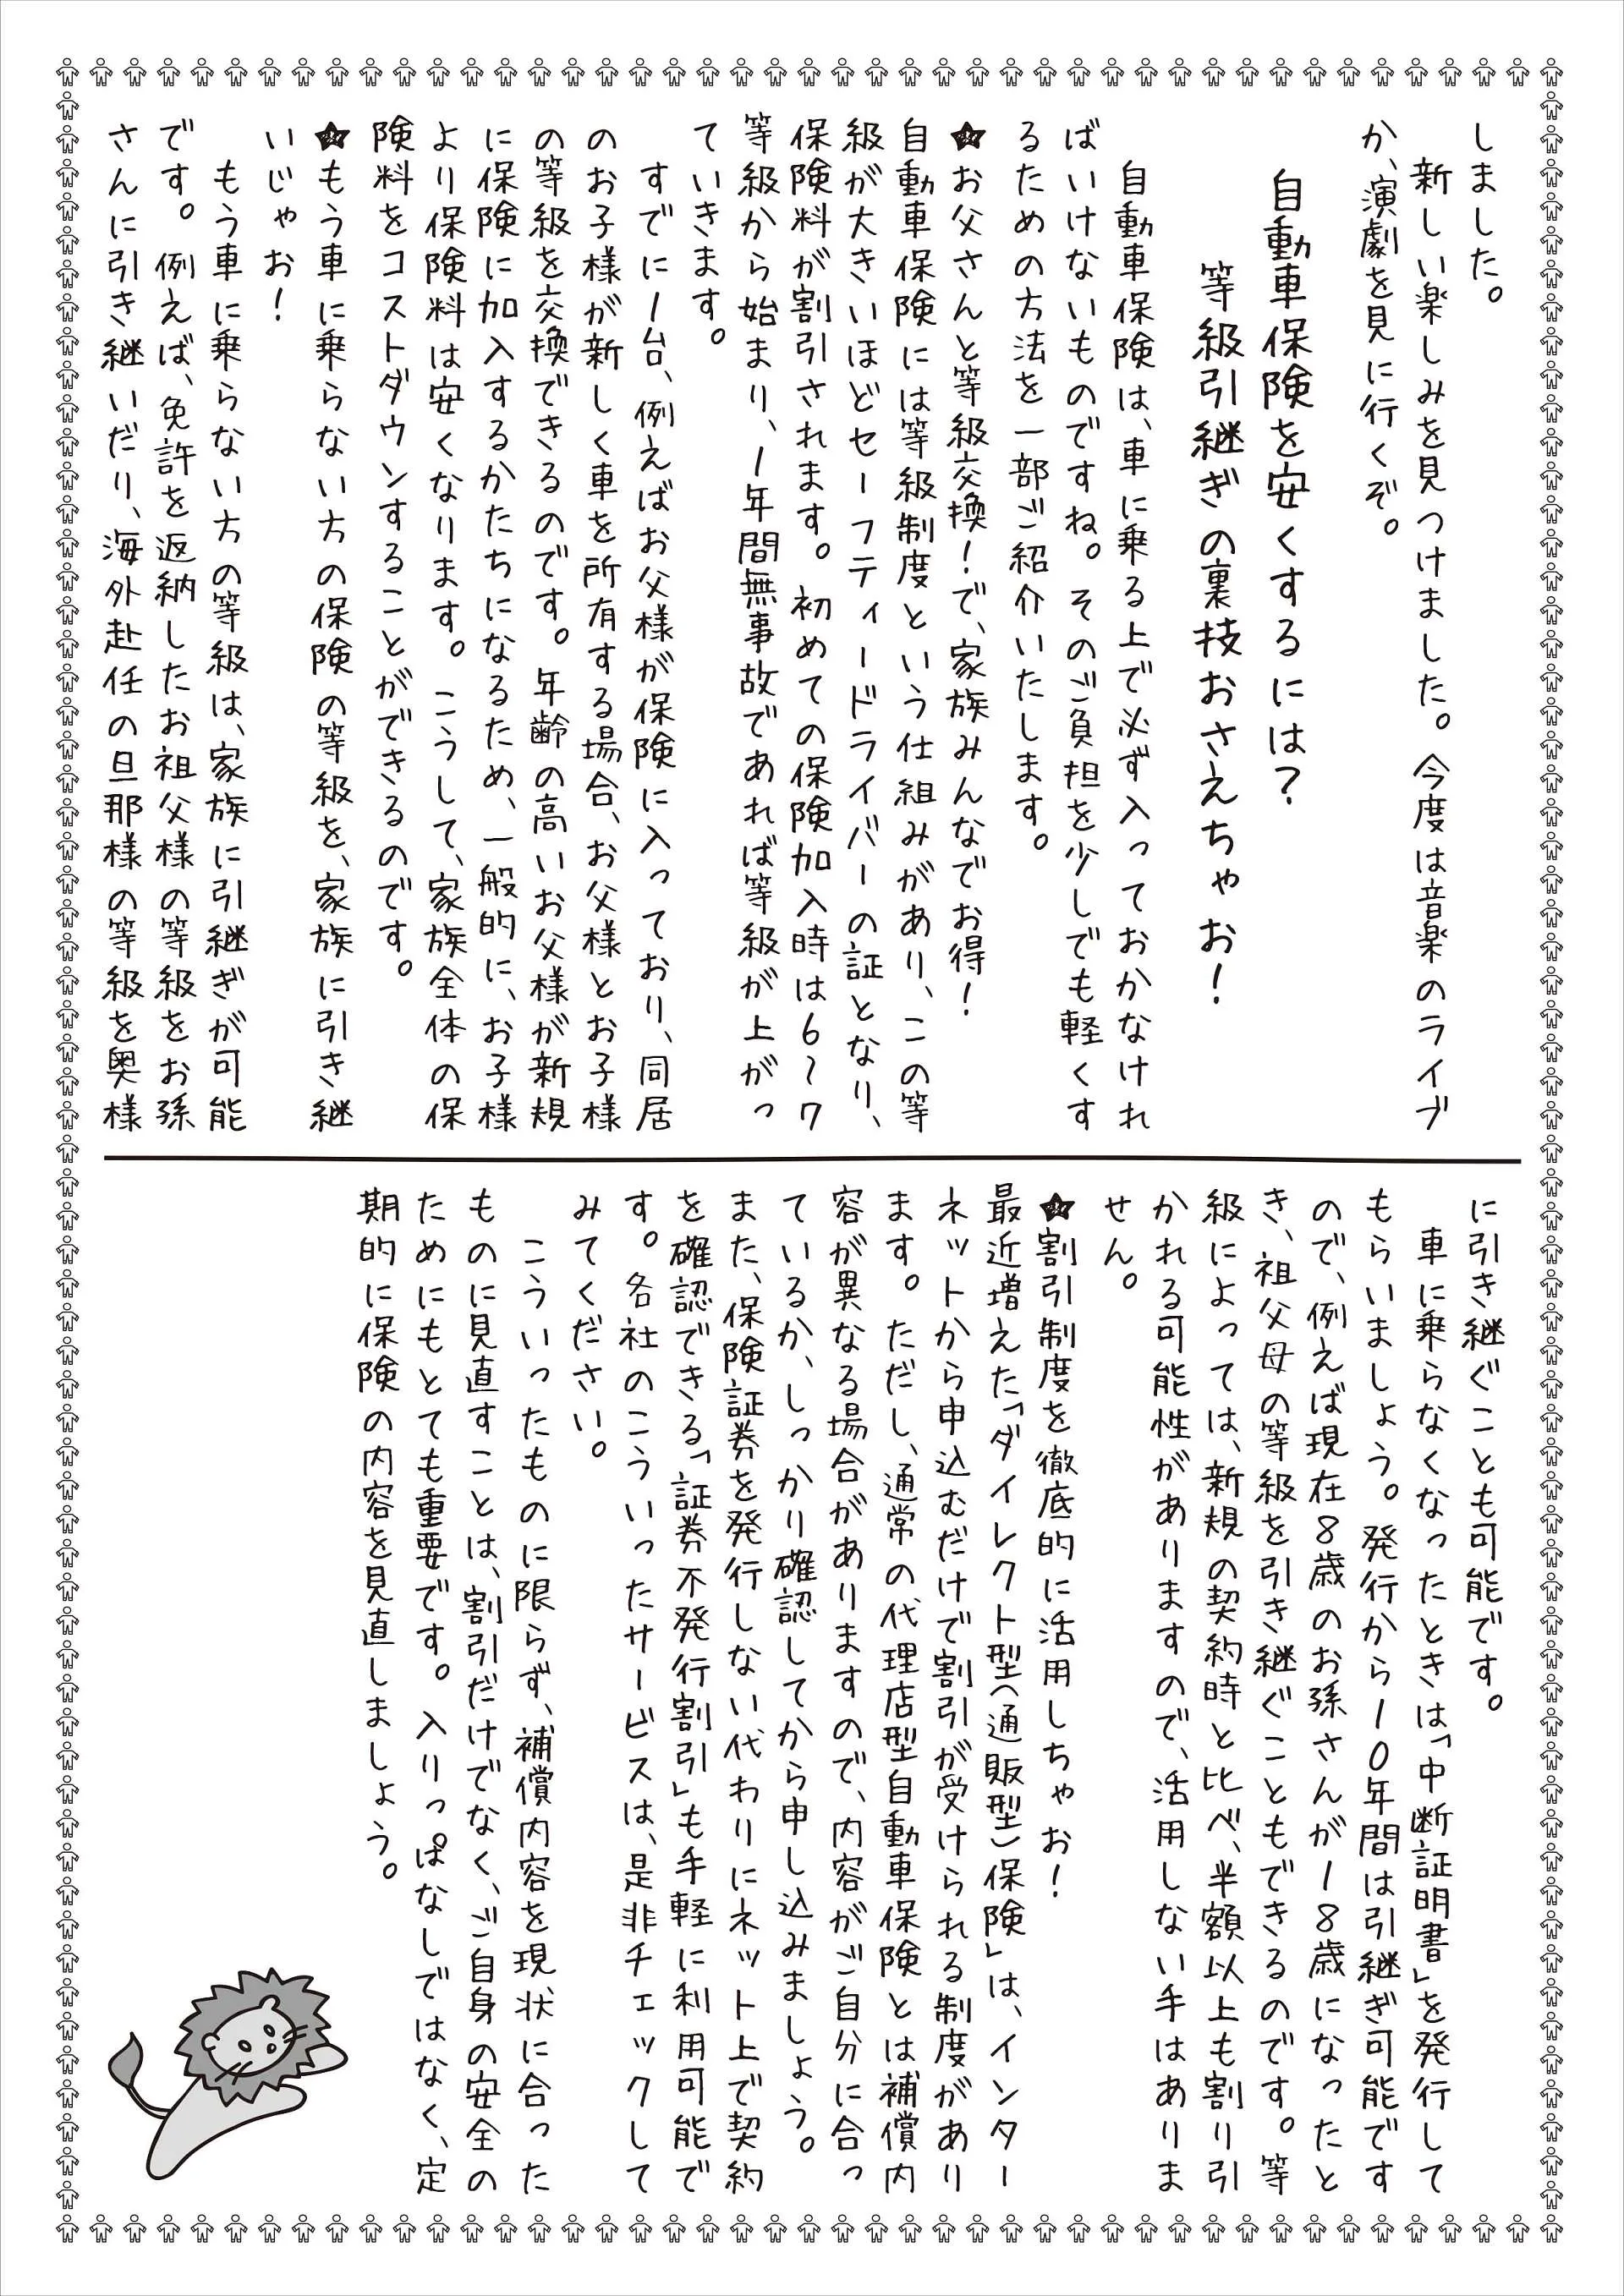 しました。
新しい楽しみを見つけました。今度は音楽のライブ
か、演劇を見に行くぞ。
自動車保険を安くするには？
等級引継ぎの裏技おさえちゃお！
自動車保険は、車に乗る上で必ず入っておかなけれ
ばいけないものですね。そのご負担を少しでも軽くす
るための方法を一部ご紹介いたします。
★お父さんと等級交換！で、家族みんなでお得！
自動車保険には等級制度という仕組みがあり、この等
級が大きいほどセーフティードライバーの証となり、
保険料が割引されます。初めての保険加入時は６～７
等級から始まり、１年間無事故であれば等級が上がっ
ていきます。
すでに１台、例えばお父様が保険に入っており、同居
のお子様が新しく車を所有する場合、お父様とお子様
の等級を交換できるのです。年齢の高いお父様が新規
に保険に加入するかたちになるため、一般的に、お子様
より保険料は安くなります。こうして、家族全体の保
険料をコストダウンすることができるのです。
★もう車に乗らない方の保険の等級を、家族に引き継
いじゃお！
もう車に乗らない方の等級は、家族に引継ぎが可能
です。例えば、免許を返納したお祖父様の等級をお孫
さんに引き継いだり、海外赴任の旦那様の等級を奥様
に引き継ぐことも可能です。
車に乗らなくなったときは「中断証明書」を発行して
もらいましょう。発行から１０年間は引継ぎ可能です
ので、例えば現在８歳のお孫さんが１８歳になったと
き、祖父母の等級を引き継ぐこともできるのです。等
級によっては、新規の契約時と比べ、半額以上も割り引
かれる可能性がありますので、活用しない手はありま
せん。
★割引制度を徹底的に活用しちゃお！
最近増えた「ダイレクト型（通販型）保険」は、インター
ネットから申込むだけで割引が受けられる制度があり
ます。ただし、通常の代理店型自動車保険とは補償内
容が異なる場合がありますので、内容がご自分に合っ
ているか、しっかり確認してから申し込みましょう。
また、保険証券を発行しない代わりにネット上で契約
を確認できる「証券不発行割引」も手軽に利用可能で
す。各社のこういったサービスは、是非チェックして
みてください。
こういったものに限らず、補償内容を現状に合った
ものに見直すことは、割引だけでなく、ご自身の安全の
ためにもとても重要です。入りっぱなしではなく、定
期的に保険の内容を見直しましょう。